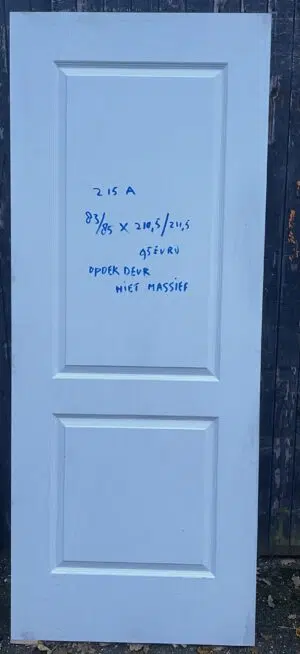 215 A
83/85 X 210,5/211,5
OPDEK DEUR
NIET MASSIEF